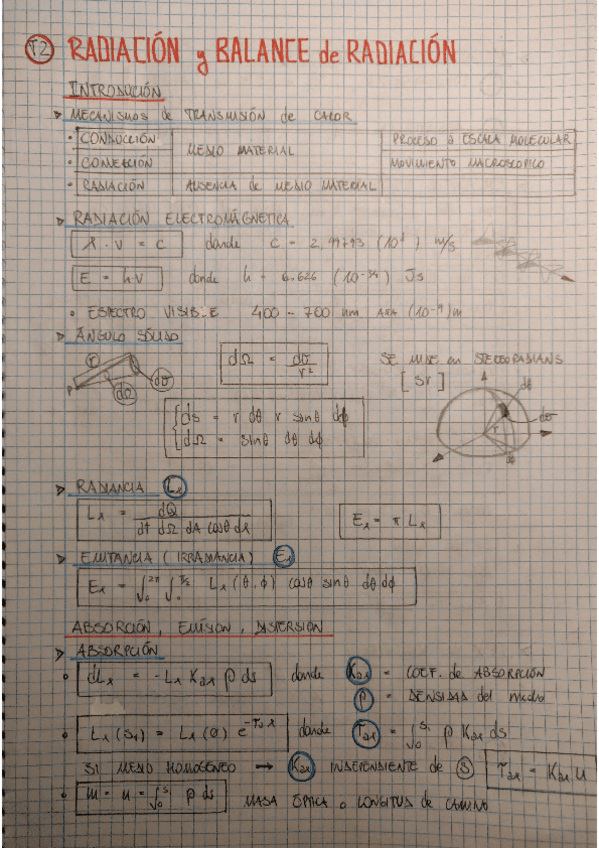 T2 RADIACIÓN y BALANCE de RADIACIÓN
INTRODUCIÓN
▷ MECANISMOS de TRANSMISIÓN de CALOR
• CONDUCCIÓN MEDIO MATERIAL PROCESO a ESCALA MOLECULAR
• CONVECCIÓN MOVIMIENTO MACROSCÓPICO
• RADIACIÓN AUSENCIA de MEDIO MATERIAL
▷ RADIACIÓN ELECTROMAGNÉTICA
λ · ν = c donde c = 2,99793 (10⁸) m/s
E = hν donde h = 6.626 (10⁻³⁴) Js
• ESPECTRO VISIBLE 400 - 700 nm (10⁻⁹) m
▷ ÁNGULO SÓLIDO
dΩ = dσ / r² SE MIDE en STEREORADIANS
[Sr]
r dσ dΩ P
ds = r dθ r sinθ dϕ
dΩ = sinθ dθ dϕ
dθ dσ r
▷ RADIANCIA Lλ
Lλ = dQ / dt dΩ dA cosθ dλ Eλ = π Lλ
▷ EMITANCIA (IRRADIANCIA) Eλ
Eλ = ∫₀^2π ∫₀^π/2 Lλ (θ, ϕ) cosθ sinθ dθ dϕ
ABSORCIÓN, EMISIÓN, DISPERSIÓN
▷ ABSORPCIÓN
• dLλ = - Lλ Kaλ ρ ds donde Kaλ = COEF. de ABSORPCIÓN
ρ = DENSIDAD del medio
• Lλ (S₁) = Lλ (0) e^-τaλ donde τaλ = ∫₀^S₁ ρ Kaλ ds
SI MEDIO HOMOGÉNEO → Kaλ INDEPENDIENTE de S τaλ = Kaλ u
• m = u = ∫₀^S₁ ρ ds MASA ÓPTICA o LONGITUD de CAMINO